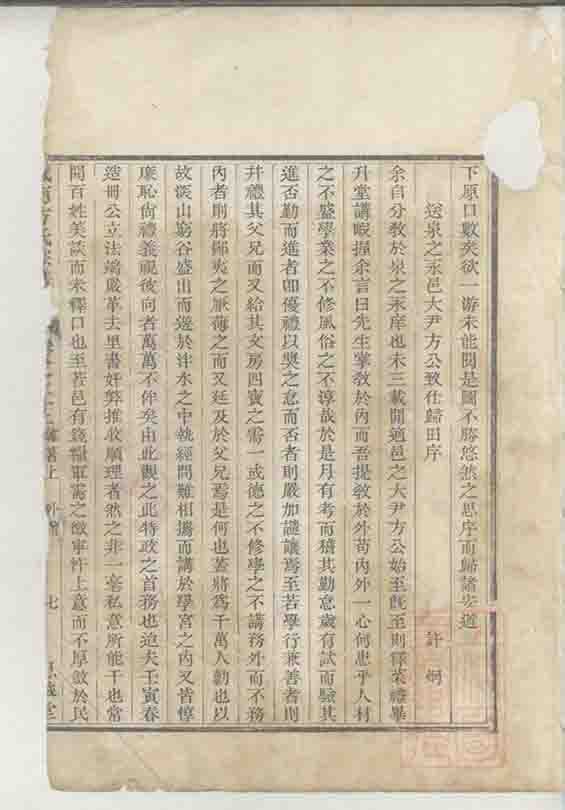 下原口數矣欲一游未能閱是圖不勝悠然之思序而歸諸安道
送泉之永邑大尹方公致仕歸田序
許炯
余自分敎於泉之永庠也未三載聞適邑之大尹方公始至旣至則釋菜禮畢
升堂講暇握余言曰先生掌敎於內而吾提敎於外苟內外一心何患乎人材
之不盛學業之不修風俗之不淳哉於是月有考而稽其勤怠歲有試而驗其
進否勤而進者卽優禮以奬之怠而否者則嚴加譴讓焉至若學行兼善者則
井禮其父兄而又給其文房四寶之需一或德之不修學之不講務外而不務
內者則將鄙夷之厭薄之而又延及於父兄焉是何也蓋將爲千萬人勸也以
故深山窮谷盛出而遊於泮水之中執經問難相擕而講於學宮之內又皆惇
廉恥尙禮義視彼向者萬萬不侔矣由此觀之此特政之首務也迨夫壬寅春
造冊公立法端嚴革去里書奸弊推收順理者然之非一毫私意所能干也當
聞百姓美談而未釋口也至若邑有錢糧軍需之徵寧忤上意而不厚斂於民
上 外 七